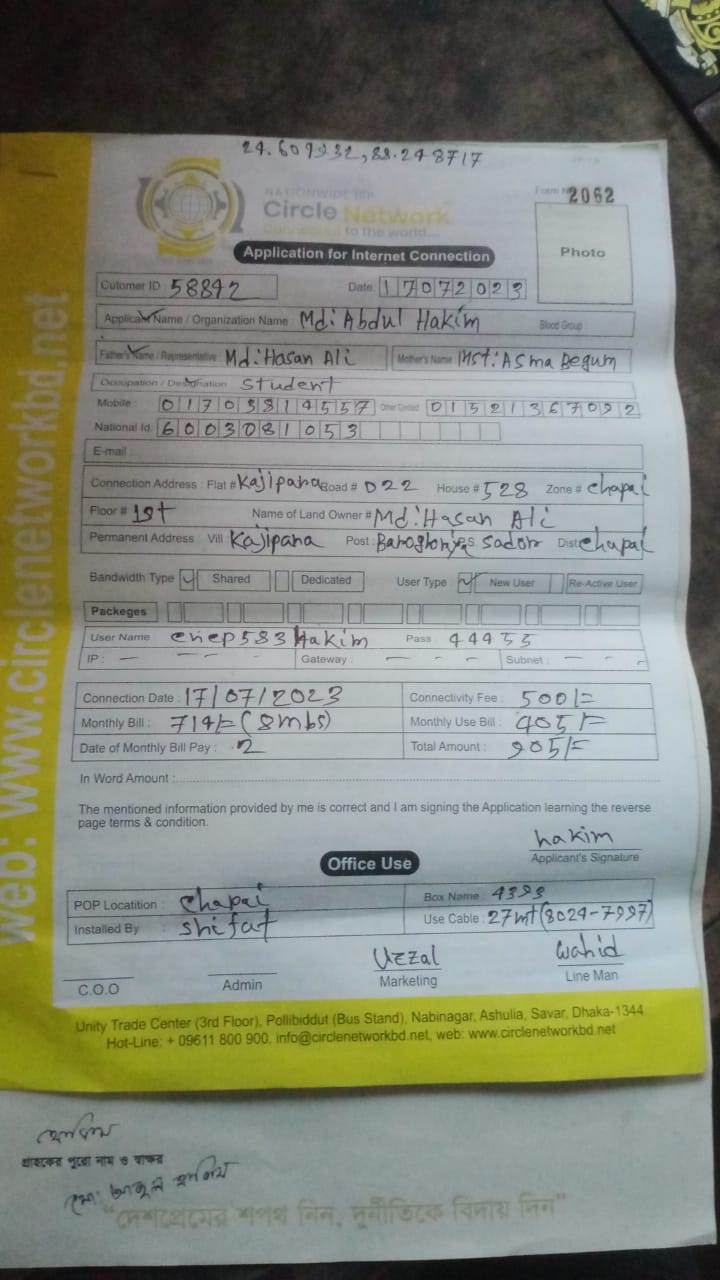 24.609932, 88.248717
NATIONWIDE ISP
Form No 2062
Circle Network
Connecting to the world...
Photo
Application for Internet Connection
Cutomer ID: 58842 Date: 17072023
Applicant Name / Organization Name Md: Abdul Hakim Blood Group
Father's Name / Representative Md: Hasan Ali Mother's Name Mst: Asma Begum
Occupation / Designation Student
Mobile: Other Contact 01521367092
National Id: 6003081053
E-mail :
Connection Address : Flat # Kajipara Road # 022 House # 528 Zone # Chapai
Floor # 1st Name of Land Owner # Md: Hasan Ali
Permanent Address : Vill Kajipara Post: PS Sador Dist: Chapai
Bandwidth Type Shared Dedicated User Type New User Re-Active User
Packeges
User Name Hakim Pass 44455
IP : — — — Gateway : — — — Subnet : — — —
Connection Date : 17/07/2023 Connectivity Fee : 500/=
Monthly Bill : 714/= (8mbs) Monthly Use Bill : 405/=
Date of Monthly Bill Pay : 2 Total Amount : 905/=
In Word Amount :
The mentioned information provided by me is correct and I am signing the Application learning the reverse
page terms & condition.
hakim
Applicant's Signature
Office Use
POP Locatition : Chapai Box Name : 4393
Installed By : Shifat Use Cable : 27mt (8024-7997)
Uzzal Wahid
C.O.O Admin Marketing Line Man
Unity Trade Center (3rd Floor), Pollibiddut (Bus Stand), Nabinagar, Ashulia, Savar, Dhaka-1344
Hot-Line: + 09611 800 900, info@circlenetworkbd.net, web: www.circlenetworkbd.net
web: www.circlenetworkbd.net
হাকিম
গ্রাহকের পুরো নাম ও স্বাক্ষর
মো: আব্দুল হাকিম
"দেশপ্রেমের শপথ নিন, দুর্নীতিকে বিদায় দিন"